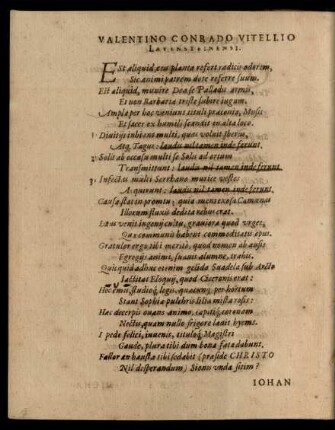 VALENTINO CONRADO VITELLIO
LAVENSTEINENSI.
EST aliquid, cum planta refert radicis odorem,
Sic animi patrem dote referre suum.
Est aliquid, munire Deæ se Palladis armis,
Et non Barbariæ triste subire iugum.
Ampla per hoc veniunt tituli præconia, Mosis
Et sacer ex humili scandis in alta loco.
1. Diuitijs inhient multi, quas voluit Iberus,
Atq; Tagus: laudis nil tamen inde ferunt.
2. Solis ab occasu multi se Solis ad ortum
Transmittunt: laudis nil tamen inde ferunt.
3. Infectas multi Serrhano murice vestes
Acquirunt: laudis nil tamen inde ferunt.
Causa stat in promtu; quia mens
Illorum fluxis dedita rebus erat.
venis ingenij cultu, graviora quod urges,
Quæ communis habent commoditatis opus.
Gratulor ergo tibi meritò, quod nomen ab ausis
Egregijs animi, fuauit alumne, trahis.
Quicquid adhuc etenim gelida Suadela sub Arcto
Iactitat Eloquij, quod Ciceronis erat:
Hoc omne, studiosè legis, quacunq; per hortum
Stant Sophiæ pulchris lilia mista rosis:
Hæc decerpis ouans animo, cupitq; earum
Nectis, quam nullo frigore lædit hyems.
I pede felici, iuvenis, titulosq; Magistri
Gaude, plura tibi dum bona fata dabunt.
Fallor an haustæ tibi sedabit (præside CHRISTO
Nil desperandum) Sionis unda sitim?
IOHAN